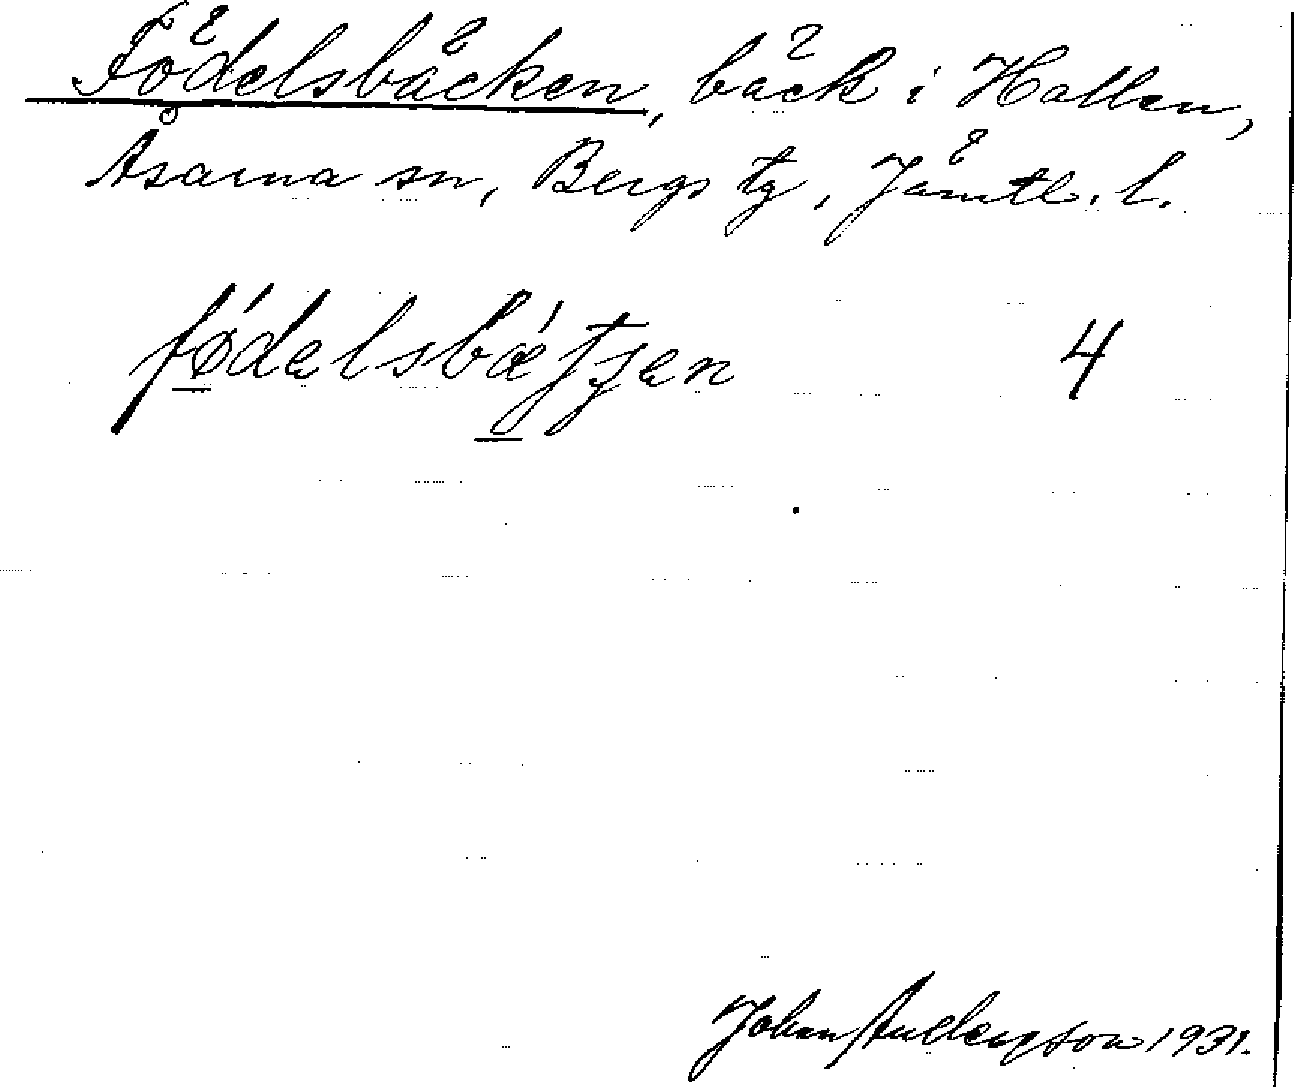 Födelsbäcken, bäck i Hallen,
Åsarna sn, Bergs tg, Jämtl. l.
fǿ̲dəlsbǽ̲ʃʒən 4
Johan Andersson 1931.